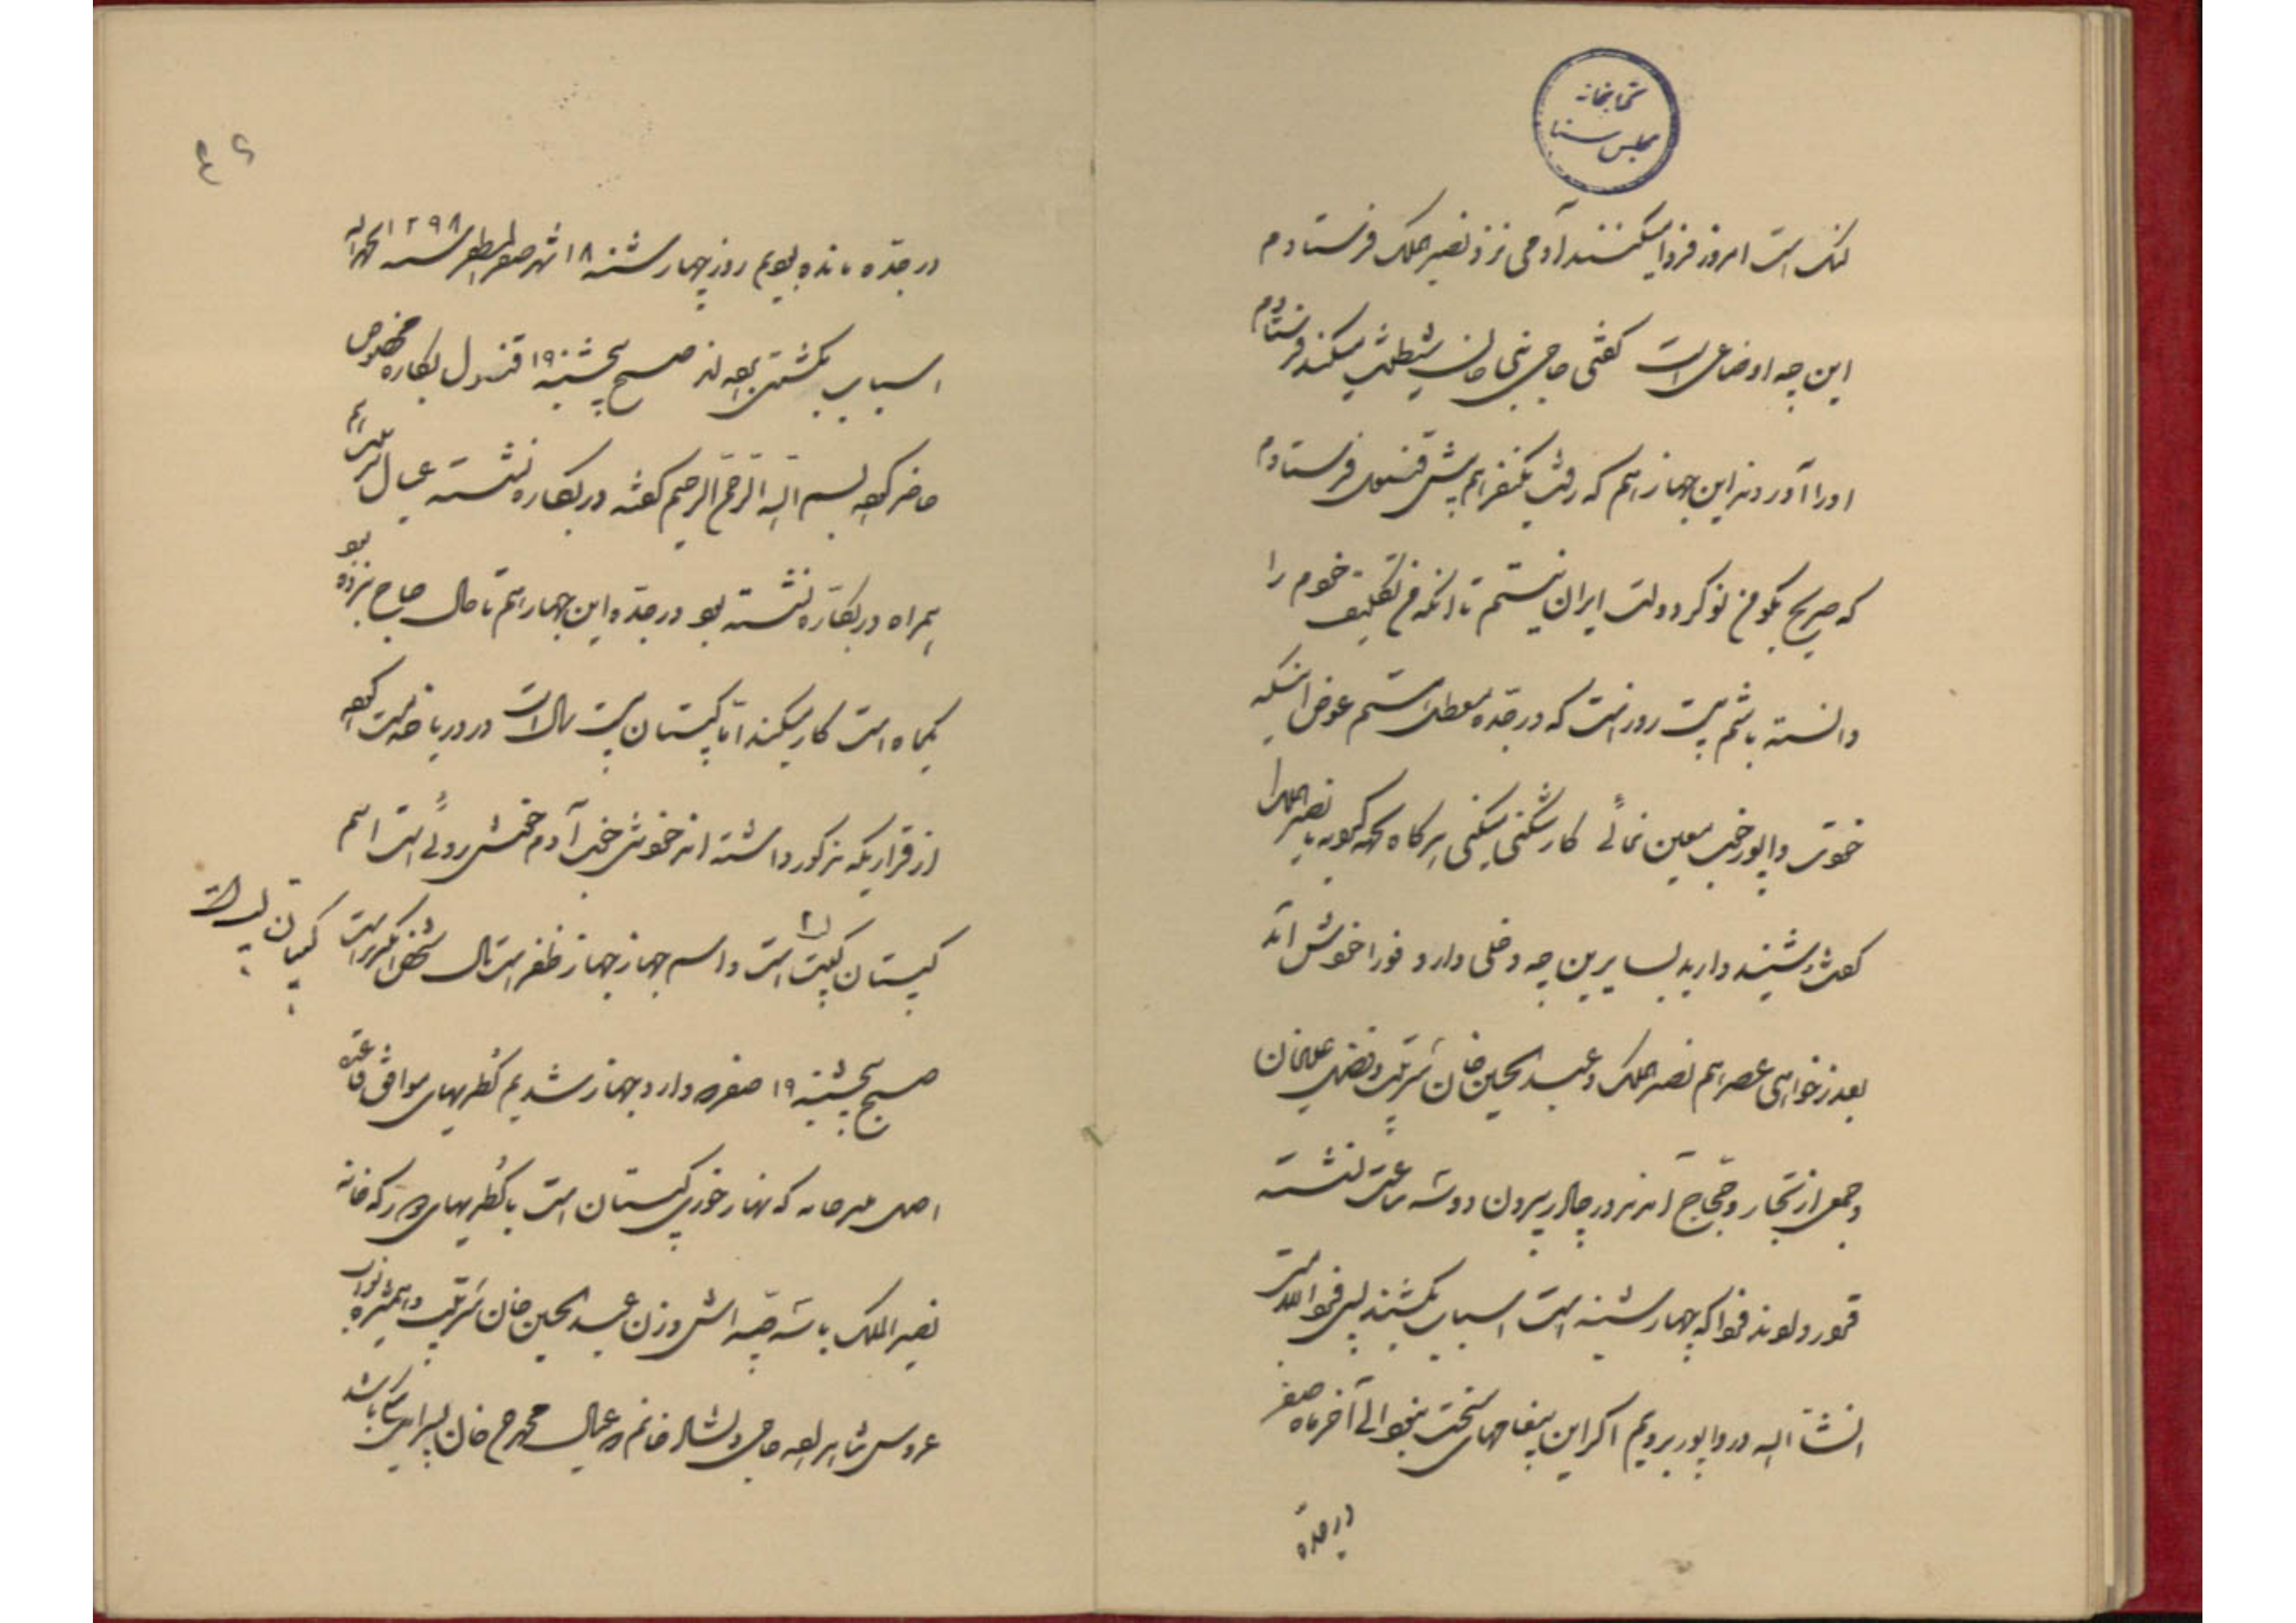 کتابخانه
مجلس سنا
لنگ است امروز فردا میکنند آدمی نزد نصیرالملک فرستادم
این چه اوضاعی است کفتی حاجی نبی خان شیطنت میکند فرستادم
او را آوردند این جهاز هم که رفت یکنفر هم پیش قنسول فرستادم
که صریح بگو من نوکر دولت ایران نیستم تا آنکه من تکلیف خودم را
دانسته باشم بیست روز است که در جده معطل هستم عوض اینکه
خودت وابور خوب معین نمائی کارشکنی میکنی هر کاه بگوید با نصیرالملک
دارید بسایرین چه دخلی دارد فورا خودش آمد
بعذرخواهی عصر هم نصیرالملک و عبدالحسین خان سرتیپ و فضلعلی خان
و جمعی از تجار و حجاج آمدند در چادر بیرون دو سه ساعت نشسته
فردا که چهارشنبه است اسباب بکشید پس فردا
انشاء الله در وابور برویم اکر این پیغامهای سخت نبود الی آخر ماه صفر
در جده
٤٦
در جده مانده بودیم روز چهارشنبه ۱۸ شهر صفرالمظفر سنه ۱۲۹۸ الحمدلله
اسباب بکشتی صبح پنجشنبه ۱۹ قنسول بقاره مخصوص
حاضر کرده بسم الله الرحمن الرحیم کفته در بقاره نشسته عیال
همراه در بقاره نشسته بود در جده و این جهاز هم تا حال حاج نبرده بود
یکماه است کار میکند اما کپیتان بیست سال است در دریا خدمت کرده
از قراریکه مذکور داشتند خودش خوب آدم خوش روئی است اسم
کپیتان است و اسم جهاز جهاز ظفر است مال شخص انکریز است کپیتان
صبح پنجشنبه ۱۹ صفر وارد جهاز شدیم کطریهای موافق قاعده
اصل که نهار خوری کپیتان است با کطریهای که خانه
نصیرالملک با سه بچه اش و زن عبدالحسین خان سرتیپ و همشیره نواب
عروس حاجی دلشاد خانم و عیال محمد رحیم خان پسر